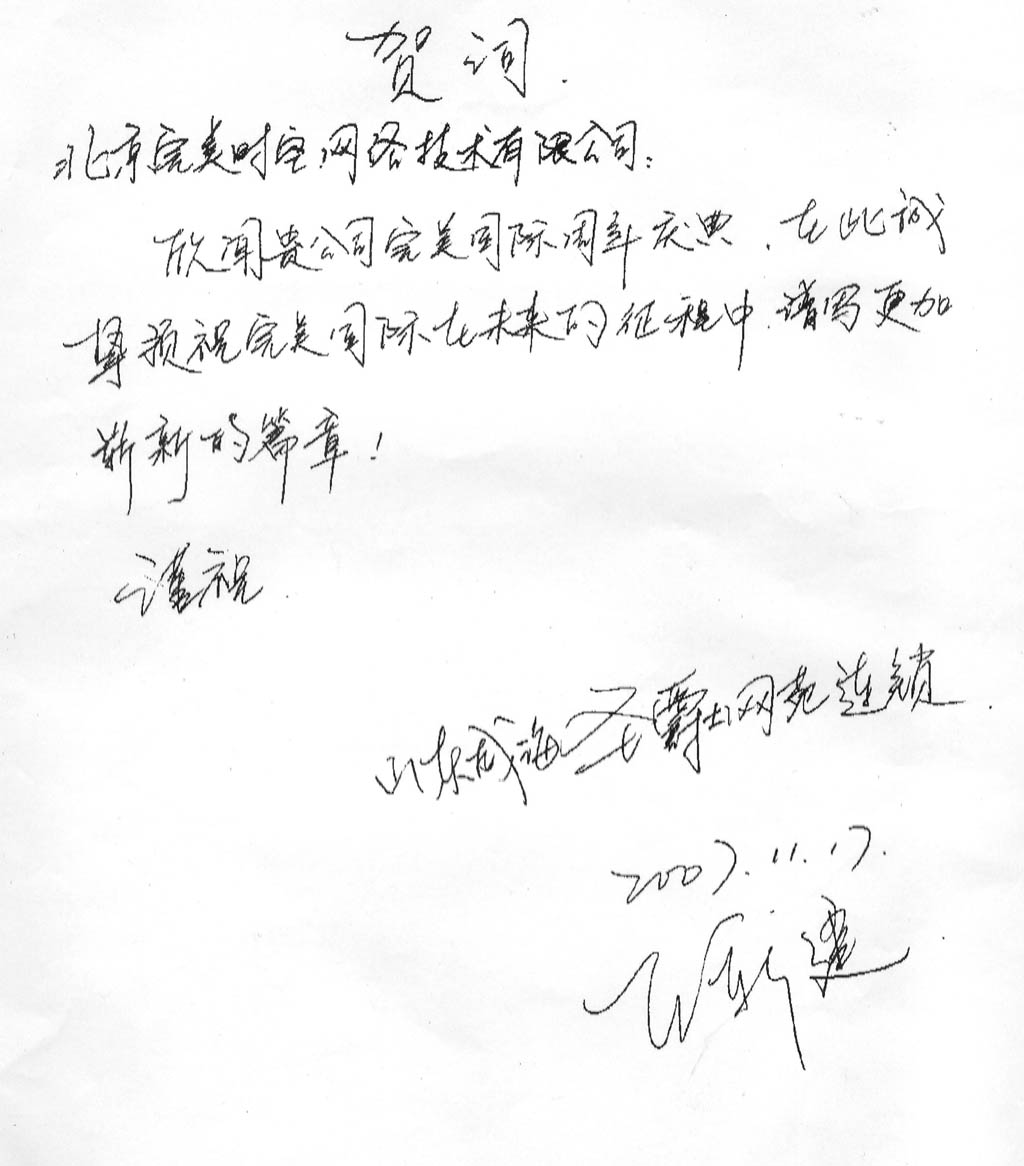 贺词.
北京完美时空网络技术有限公司:
欣闻贵公司完美国际周年庆典、在此诚
挚预祝完美国际在未来的征程中、谱写更加
崭新的篇章!
谨祝.
山东威海圣爵士网苑连锁.
2007.11.17.